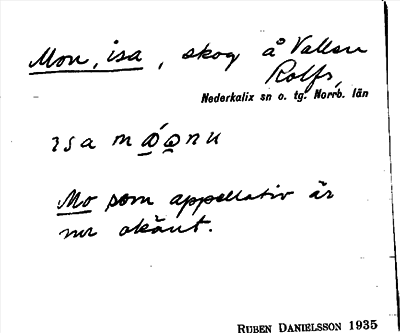 Mon, isa, skog å Vallen
Rolfs,
Nederkalix sn o. tg. Norrb. län
isa
Mo som appellativ är
nu okänt.
RUBEN DANIELSSON 1935